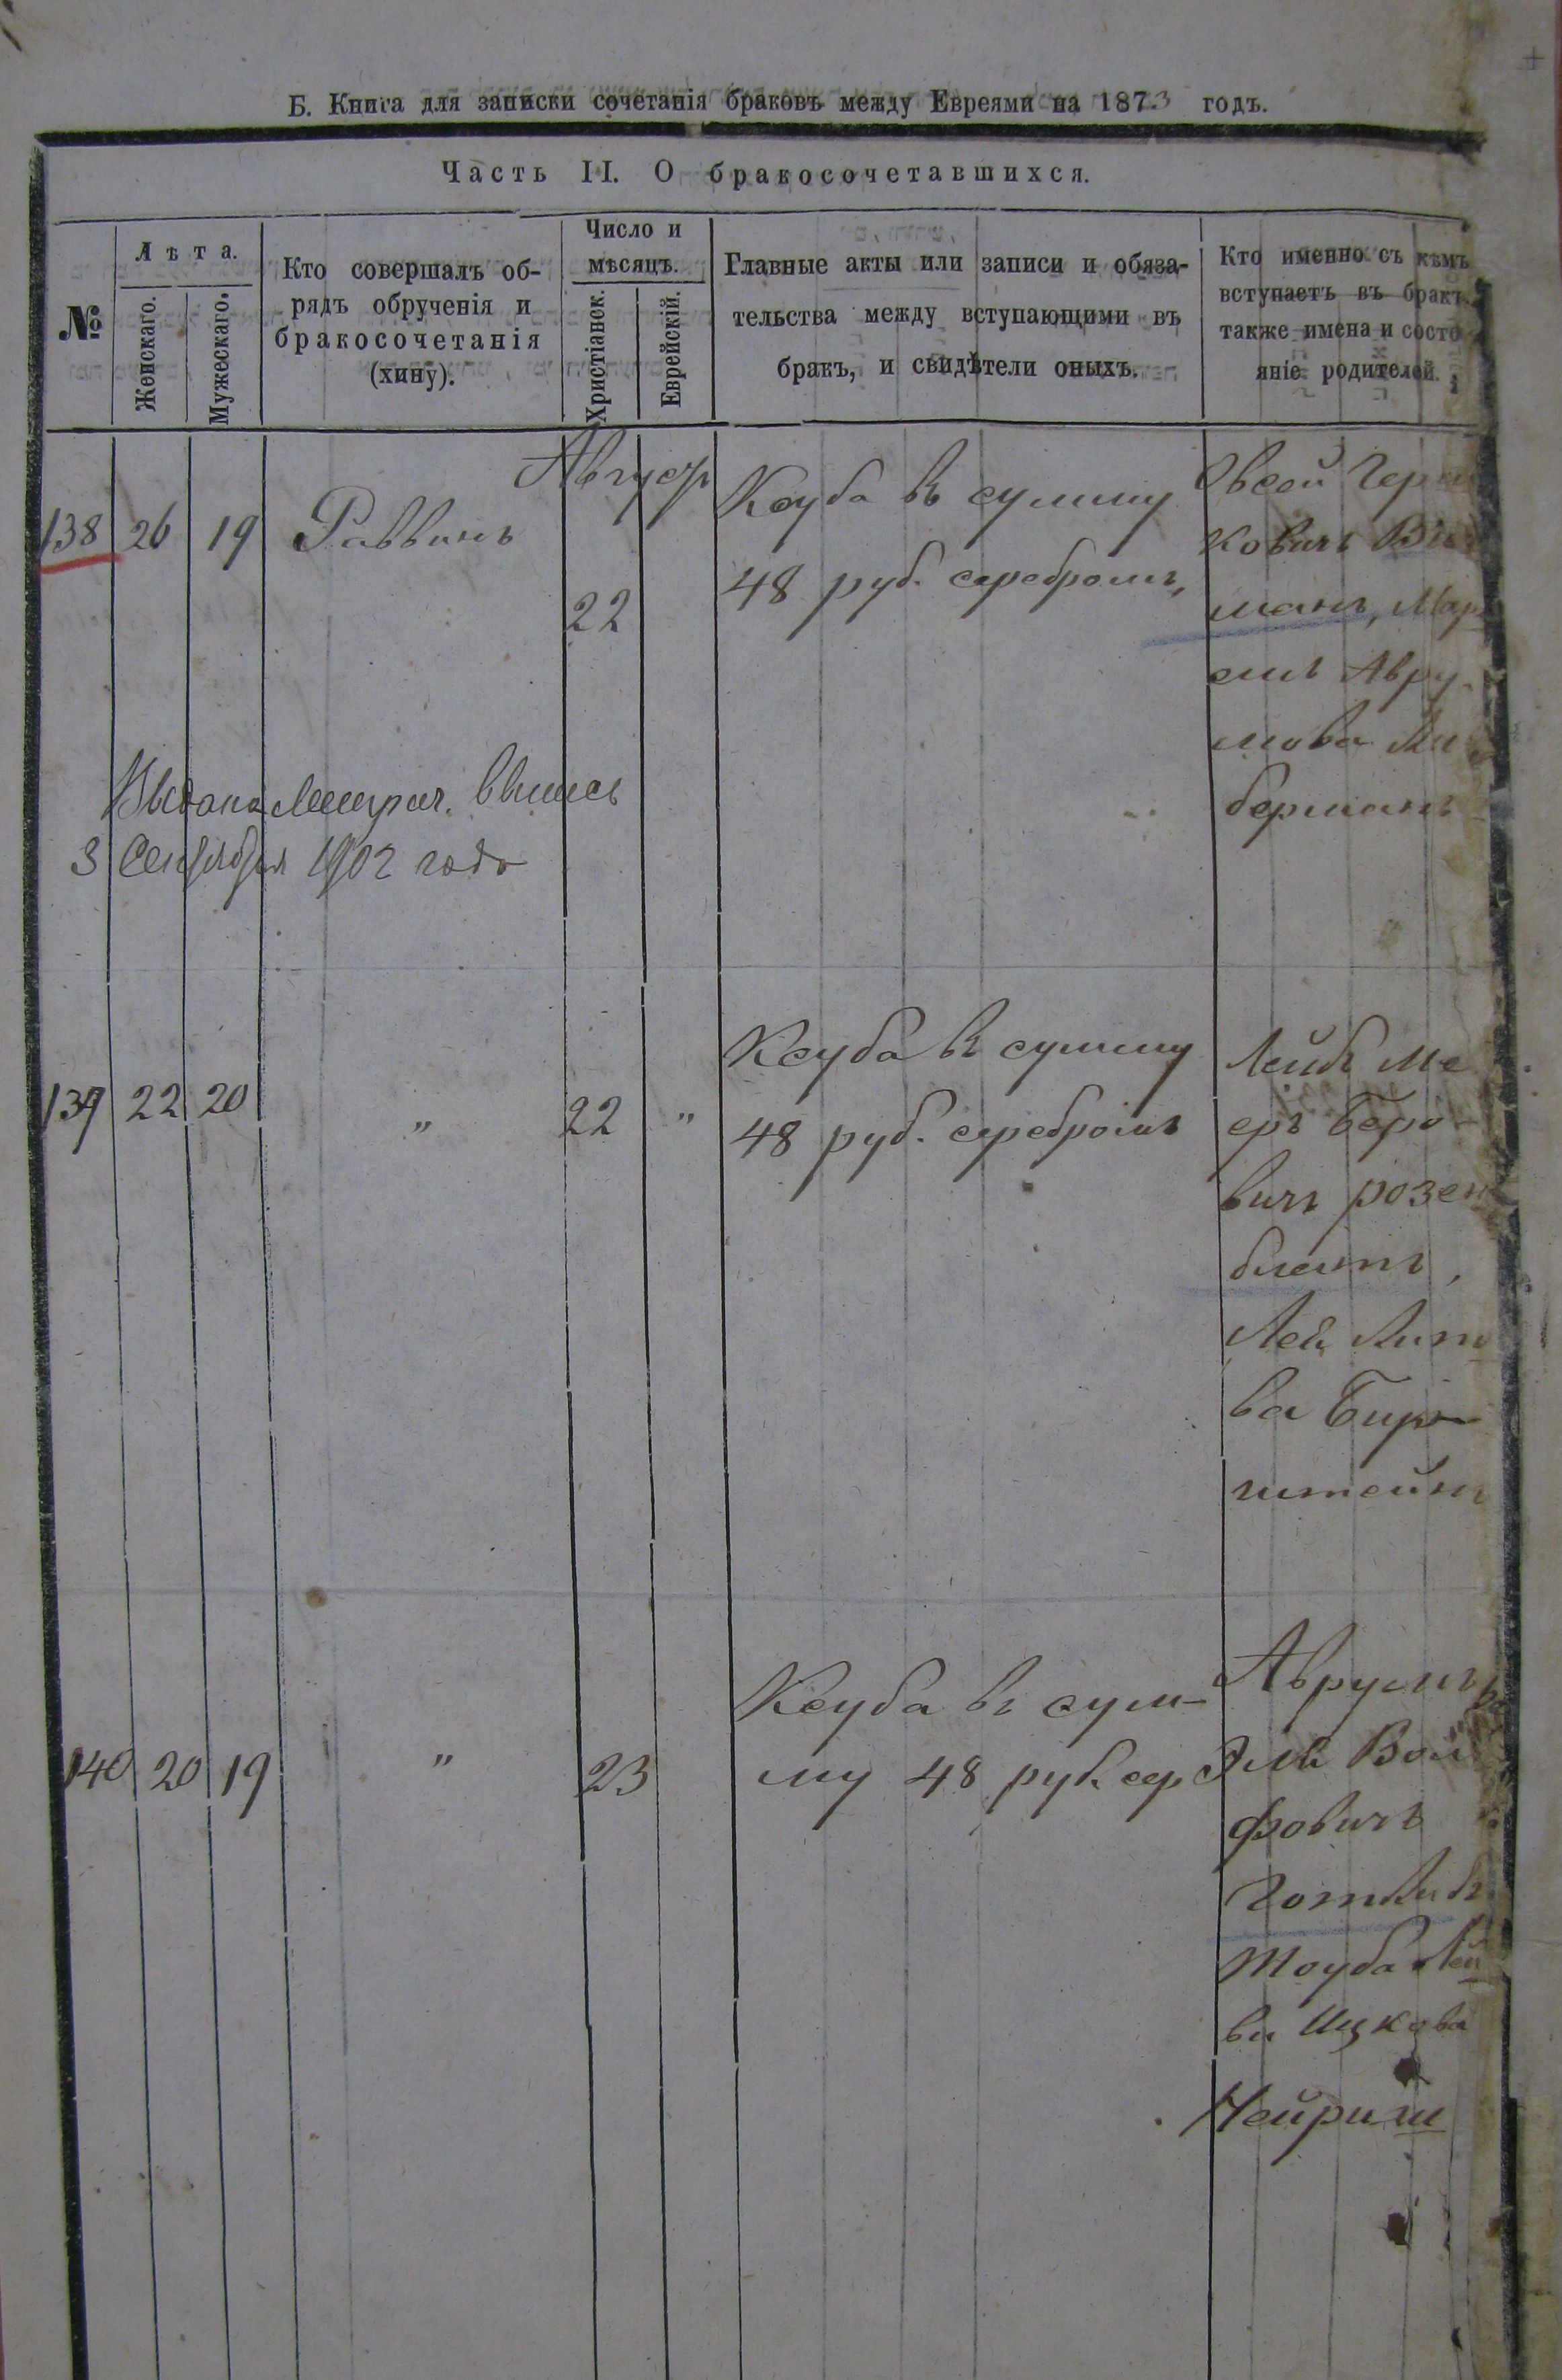 Б. Книга для записки сочетанія браковъ между Евреями на 1873 годъ.
Часть II. О бракосочетавшихся.
№
Лѣта.
Женскаго.
Мужескаго.
Кто совершалъ об-
рядъ обрученія и
бракосочетанія
(хину).
Число и
мѣсяцъ.
Христіанск.
Еврейскій.
Главные акты или записи и обяза-
тельства между вступающими въ
бракъ, и свидѣтели оныхъ.
Кто именно съ кѣмъ
вступаетъ въ бракъ,
также имена и состо
яніе родителей.
Август
138 26 19 Раввинъ 22
Ксуба въ сумму
48 руб. серебромъ,
Овсей Герш
ковичъ
манъ,
Авру-
мова Ли
берманъ
Выдана Метрич. выпись
3 Сентября 1902 года
139 22 20 " 22 "
Ксуба въ сумму
48 руб. серебромъ
Лейбъ Ме
еръ Берко
вичъ розен
блатъ,
Лея
ва Бирн
штейнъ
140 20 19 " 23
Ксуба въ сум-
му 48 руб. сер
Аврумъ
Эля Воль
фовичъ
Готлибъ
Тоуба Лей
ва Ицкова
Нейриш